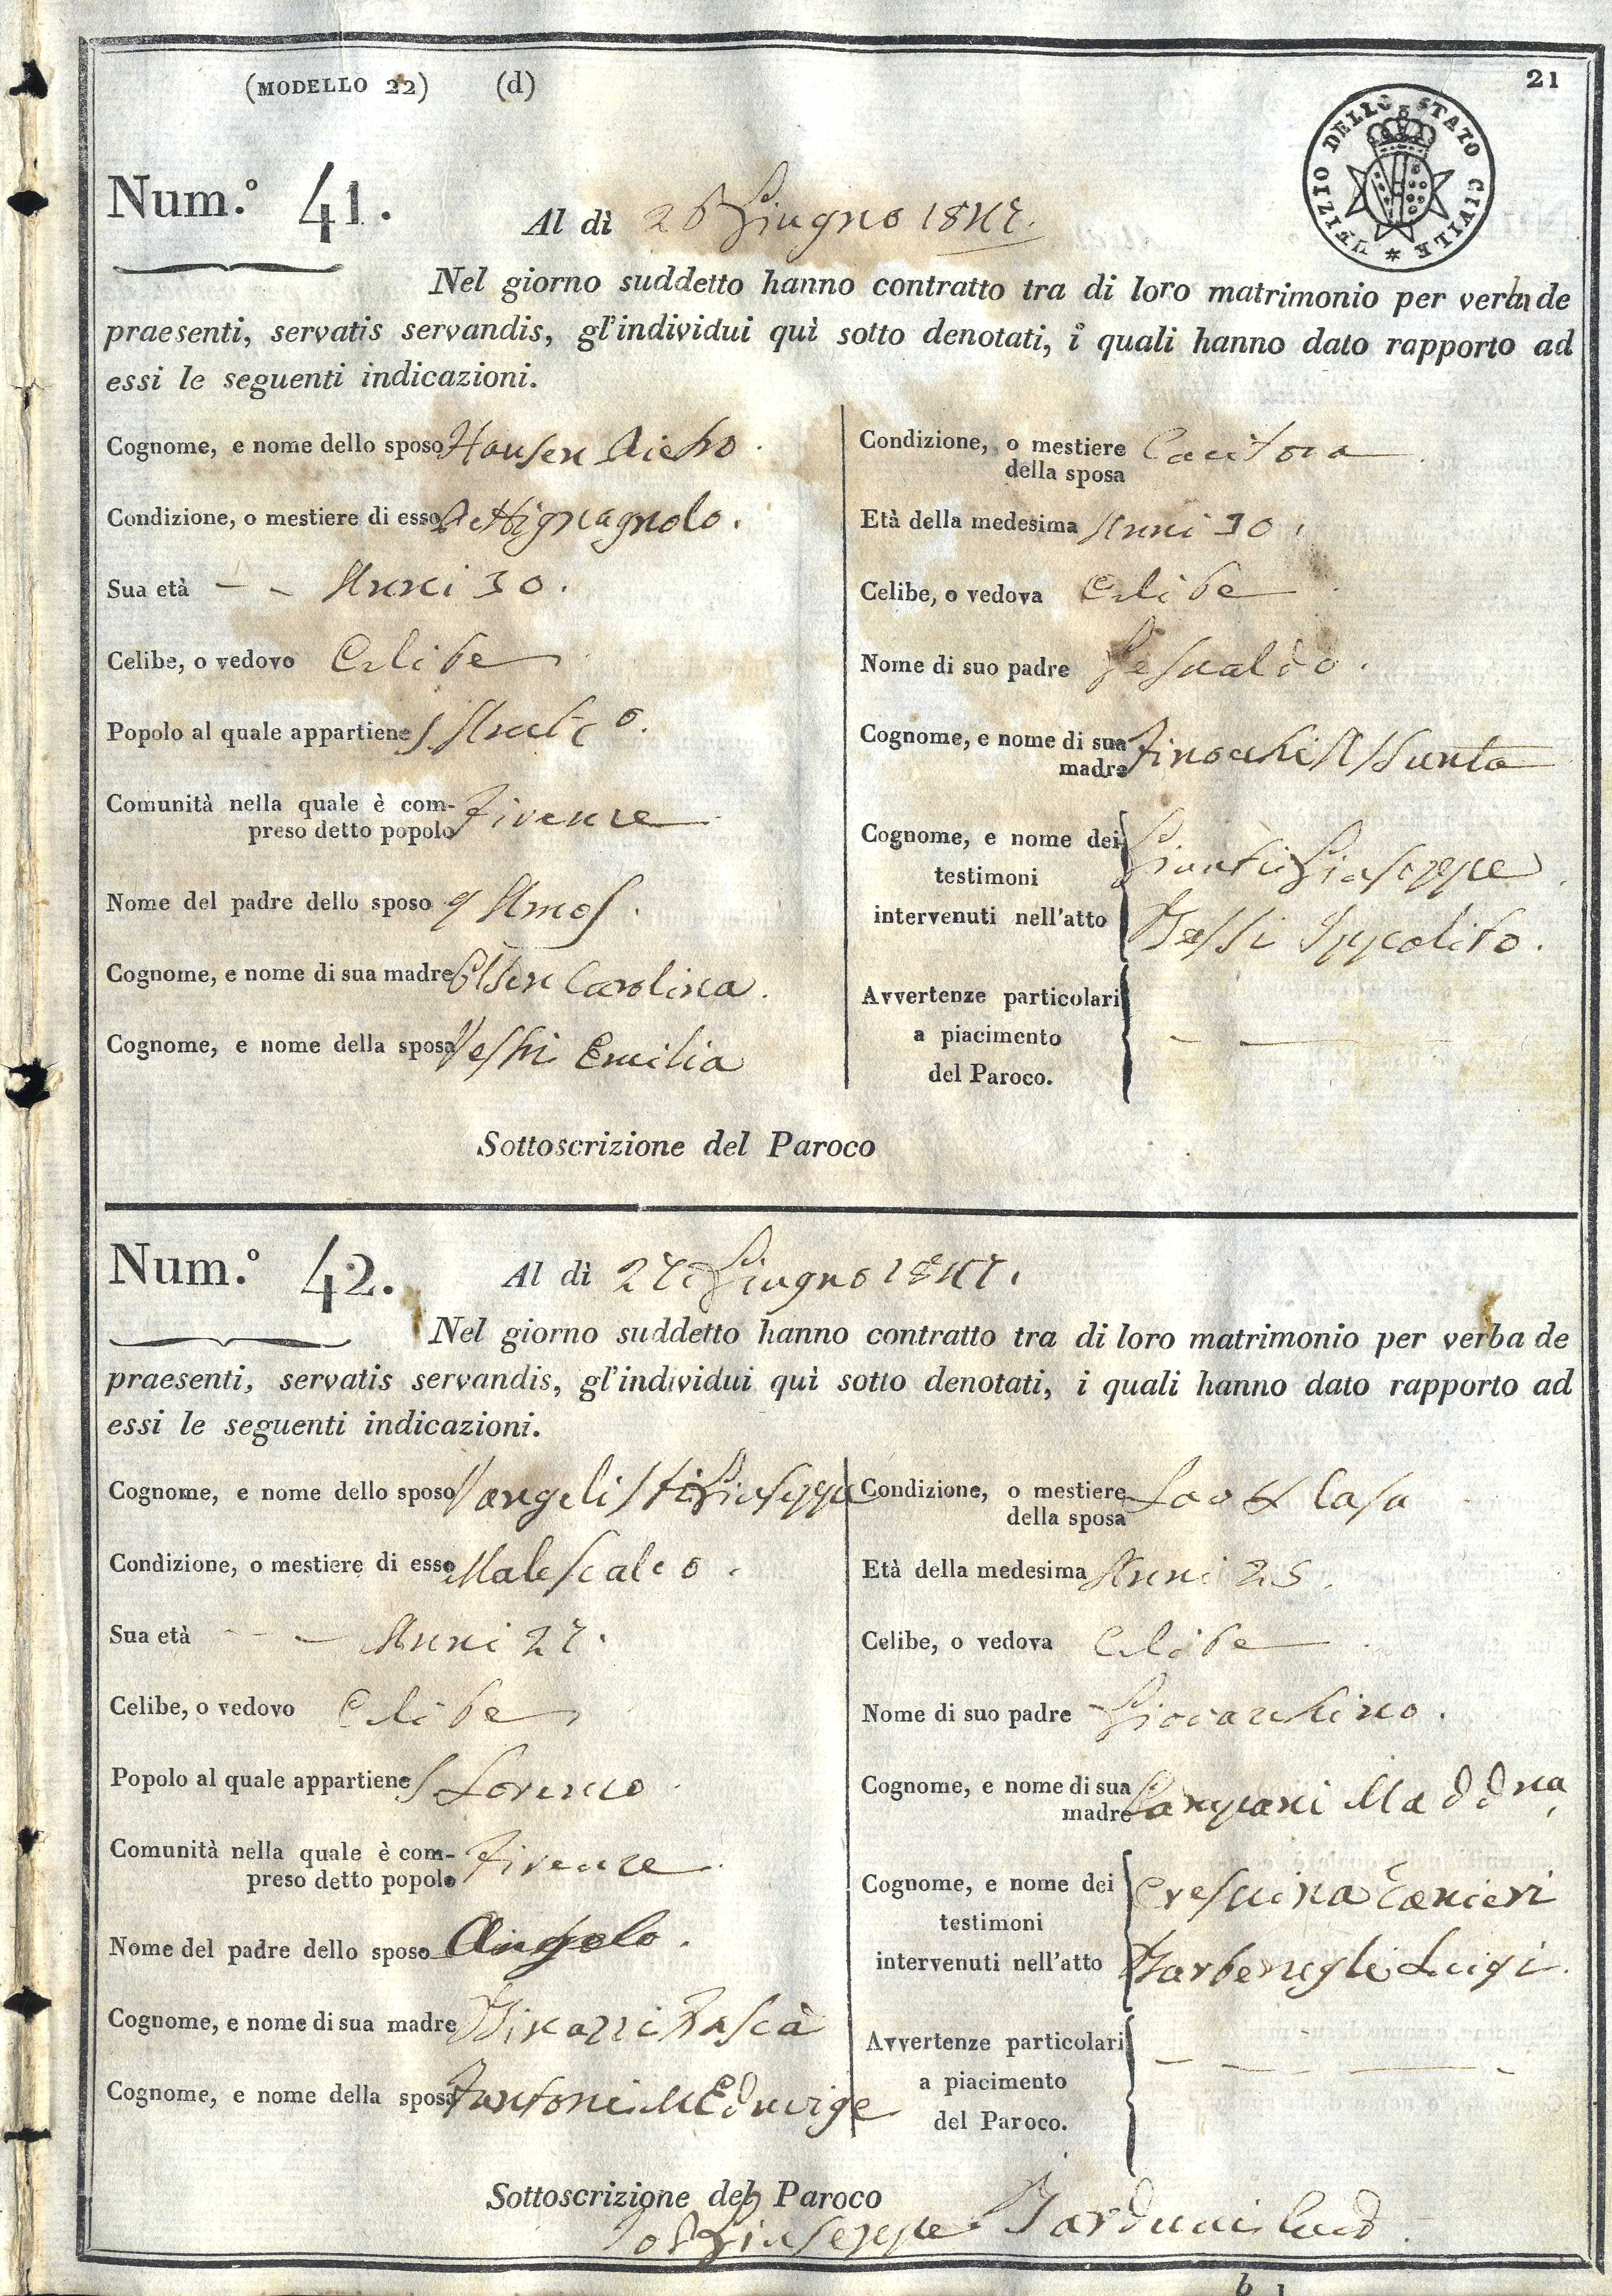 (MODELLO 22) (d)
21
UFIZIO DELLO STATO CIVILE
Num.º 41.
Al dì 26 Giugno 1847.
Nel giorno suddetto hanno contratto tra di loro matrimonio per verba de
praesenti, servatis servandis, gl'individui quì sotto denotati, i quali hanno dato rapporto ad
essi le seguenti indicazioni.
Cognome, e nome dello sposo Hansen
Condizione, o mestiere di esso
Sua età -- Anni 30.
Celibe, o vedovo Celibe
Popolo al quale appartiene S.
Comunità nella quale è com-
preso detto popolo Firenze
Nome del padre dello sposo q Amos.
Cognome, e nome di sua madre Olsen Carolina.
Cognome, e nome della sposa Emilia
Condizione, o mestiere
della sposa
Età della medesima Anni 30.
Celibe, o vedova Celibe
Nome di suo padre Gesualdo.
Cognome, e nome di sua
madre Finocchi Assunta
Cognome, e nome dei
testimoni
intervenuti nell'atto
Giunti Giuseppe
Ippolito.
Avvertenze particolari
a piacimento
del Paroco.
Sottoscrizione del Paroco
Num.º 42.
Al dì 27 Giugno 1847.
Nel giorno suddetto hanno contratto tra di loro matrimonio per verba de
praesenti, servatis servandis, gl'individui quì sotto denotati, i quali hanno dato rapporto ad
essi le seguenti indicazioni.
Cognome, e nome dello sposo Vangelisti Giuseppe
Condizione, o mestiere di esso Malescalco.
Sua età -- Anni 27.
Celibe, o vedovo Celibe
Popolo al quale appartiene S Lorenzo
Comunità nella quale è com-
preso detto popolo Firenze
Nome del padre dello sposo Angelo.
Cognome, e nome di sua madre
Cognome, e nome della sposa Fantoni M Edwige
Condizione, o mestiere
della sposa Casa
Età della medesima Anni 25.
Celibe, o vedova Celibe
Nome di suo padre Giovacchino.
Cognome, e nome di sua
madre Campani Maddna
Cognome, e nome dei
testimoni
intervenuti nell'atto
Crescina Ranieri
Luigi.
Avvertenze particolari
a piacimento
del Paroco.
Sottoscrizione del Paroco
Giuseppe
b 1